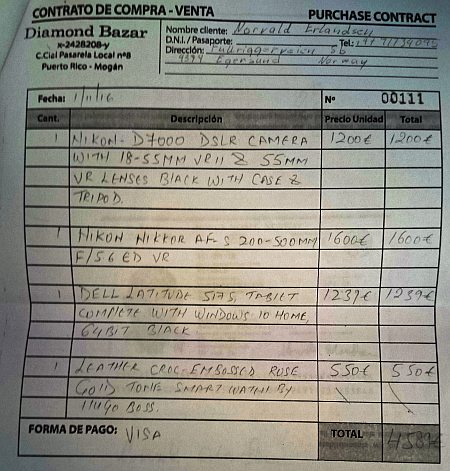 CONTRATO DE COMPRA - VENTA PURCHASE CONTRACT
Diamond Bazar
x-2428208-y
C.Cial Pasarela Local nº8
Puerto Rico - Mogán
Nombre cliente: Norvald Erlandsen
D.N.I. / Pasaporte: Tel.:
Dirección: 5b
4374 Egersund Norway
Fecha: 1/11/16 Nº 00111
Cant. Descripción Precio Unidad Total
1 NIKON- D7000 DSLR CAMERA 1200€ 1200€
WITH 18-55MM VR II & 55MM
VR LENSES BLACK WITH CASE &
TRIPOD.
1 NIKON NIKKOR AF-S 200-500MM 1600€ 1600€
F/5.6 ED VR
1 DELL LATITUDE 5175, TABLET 1239€ 1239€
COMPLETE WITH WINDOWS 10 HOME,
64BIT BLACK.
1 LEATHER CROC-EMBOSSED ROSE 550€ 550€
GOLD TONE SMART WATH BY
HUGO BOSS.
FORMA DE PAGO: VISA TOTAL 4589€